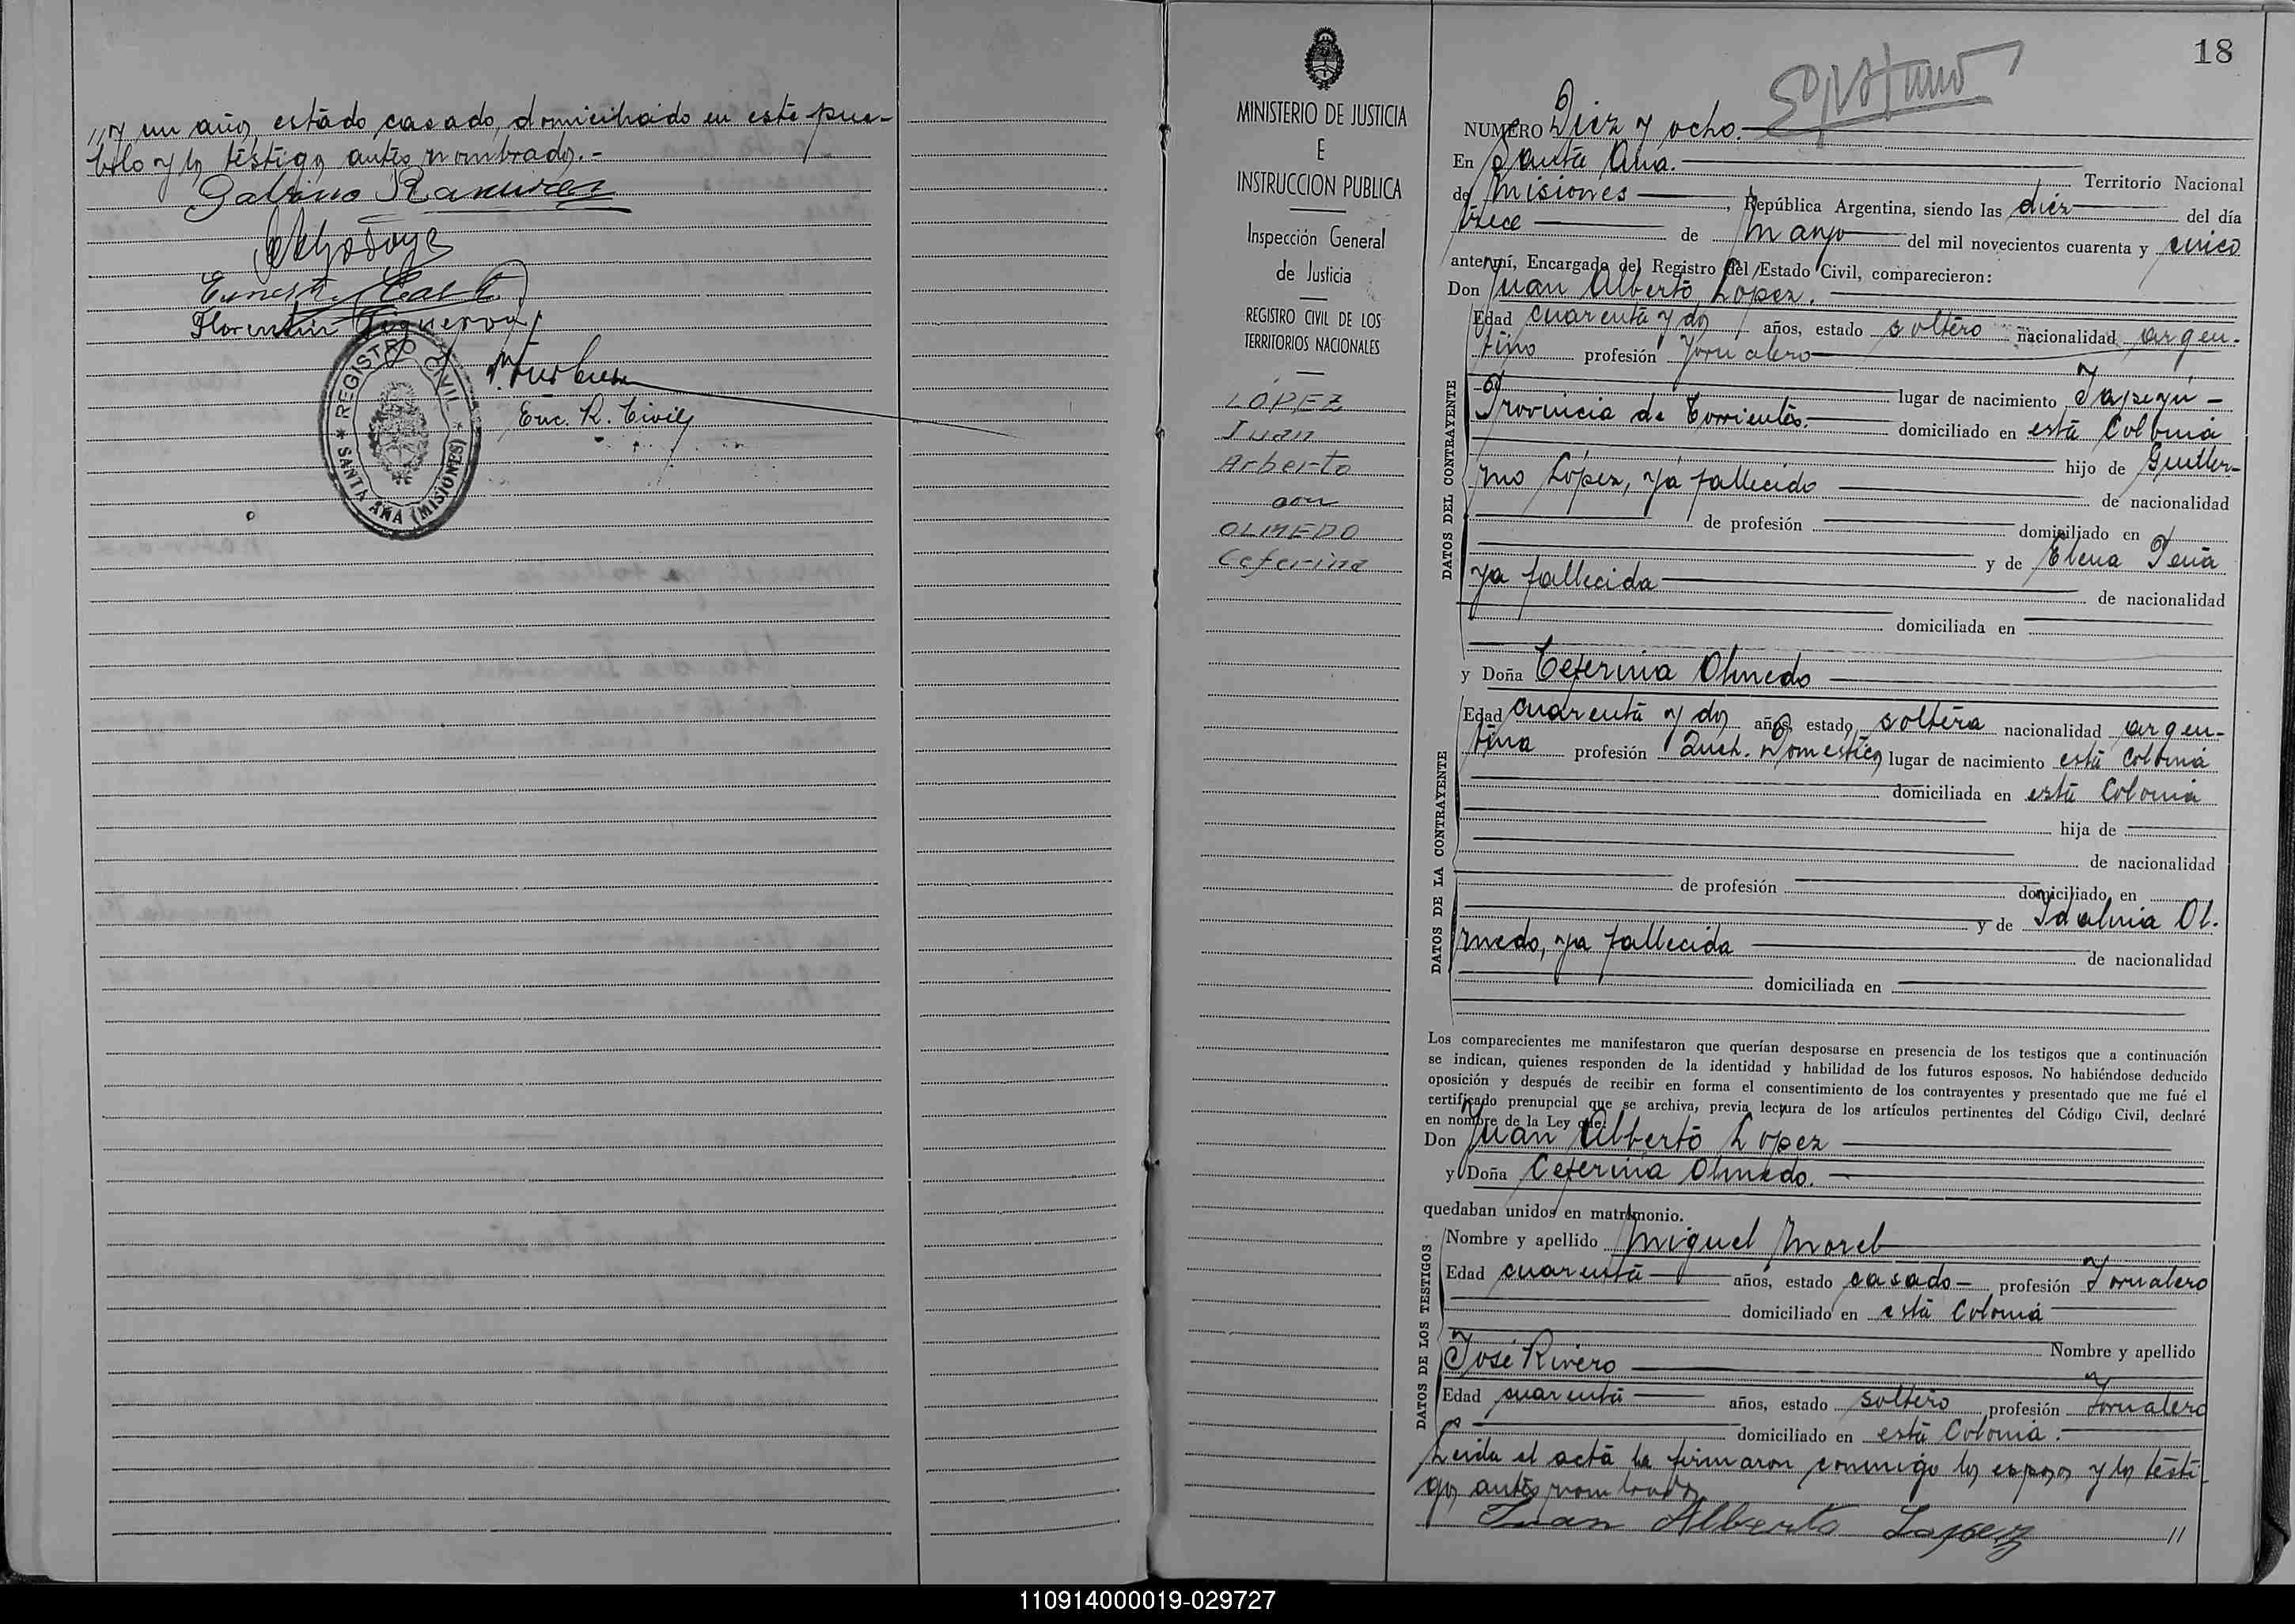 "y un año, estado casado, domiciliado en este pue-
blo y los testigos antes nombrados.-
Gabino Ramirez
Florentin Figueroa
REGISTRO CIVIL
SANTA ANA (MISIONES)
Enc. R. Civil
18
MINISTERIO DE JUSTICIA
E
INSTRUCCION PUBLICA
Inspección General
de Justicia
REGISTRO CIVIL DE LOS
TERRITORIOS NACIONALES
LOPEZ
Juan
Arberto
con
OLMEDO
Ceferina
NUMERO Diez y ocho.
En Santa Ana.
Territorio Nacional
de Misiones, República Argentina, siendo las diez del día
trece de Mayo del mil novecientos cuarenta y cinco
ante mí, Encargado del Registro del Estado Civil, comparecieron:
Don Juan Alberto Lopez.
DATOS DEL CONTRAYENTE
Edad cuarenta y dos años, estado soltero nacionalidad argen-
tino profesión Jornalero
lugar de nacimiento Yapeyú -
Provincia de Corrientes.- domiciliado en esta Colonia
hijo de Guiller-
mo López, ya fallecido de nacionalidad
de profesión domiciliado en
y de Elena Peña
ya fallecida de nacionalidad
domiciliada en
y Doña Ceferina Olmedo
DATOS DE LA CONTRAYENTE
Edad cuarenta y dos años, estado soltera nacionalidad argen-
tina profesión Queh. Domesticos lugar de nacimiento esta Colonia
domiciliada en esta Colonia
hija de
de nacionalidad
de profesión domiciliado en
y de Idalina Ol-
medo, ya fallecida de nacionalidad
domiciliada en
Los comparecientes me manifestaron que querían desposarse en presencia de los testigos que a continuación
se indican, quienes responden de la identidad y habilidad de los futuros esposos. No habiéndose deducido
oposición y después de recibir en forma el consentimiento de los contrayentes y presentado que me fué el
certificado prenupcial que se archiva, previa lectura de los artículos pertinentes del Código Civil, declaré
en nombre de la Ley que:
Don Juan Alberto Lopez
y Doña Ceferina Olmedo.
quedaban unidos en matrimonio.
DATOS DE LOS TESTIGOS
Nombre y apellido Miguel Morel
Edad cuarenta años, estado casado - profesión Jornalero
domiciliado en esta Colonia
Nombre y apellido
José Rivero
Edad cuarenta años, estado soltero profesión Jornalero
domiciliado en esta Colonia.-
Leida el acta la firmaron conmigo los esposos y los testi-
gos antes nombrados
Juan Alberto Lopez //
110914000019-029727